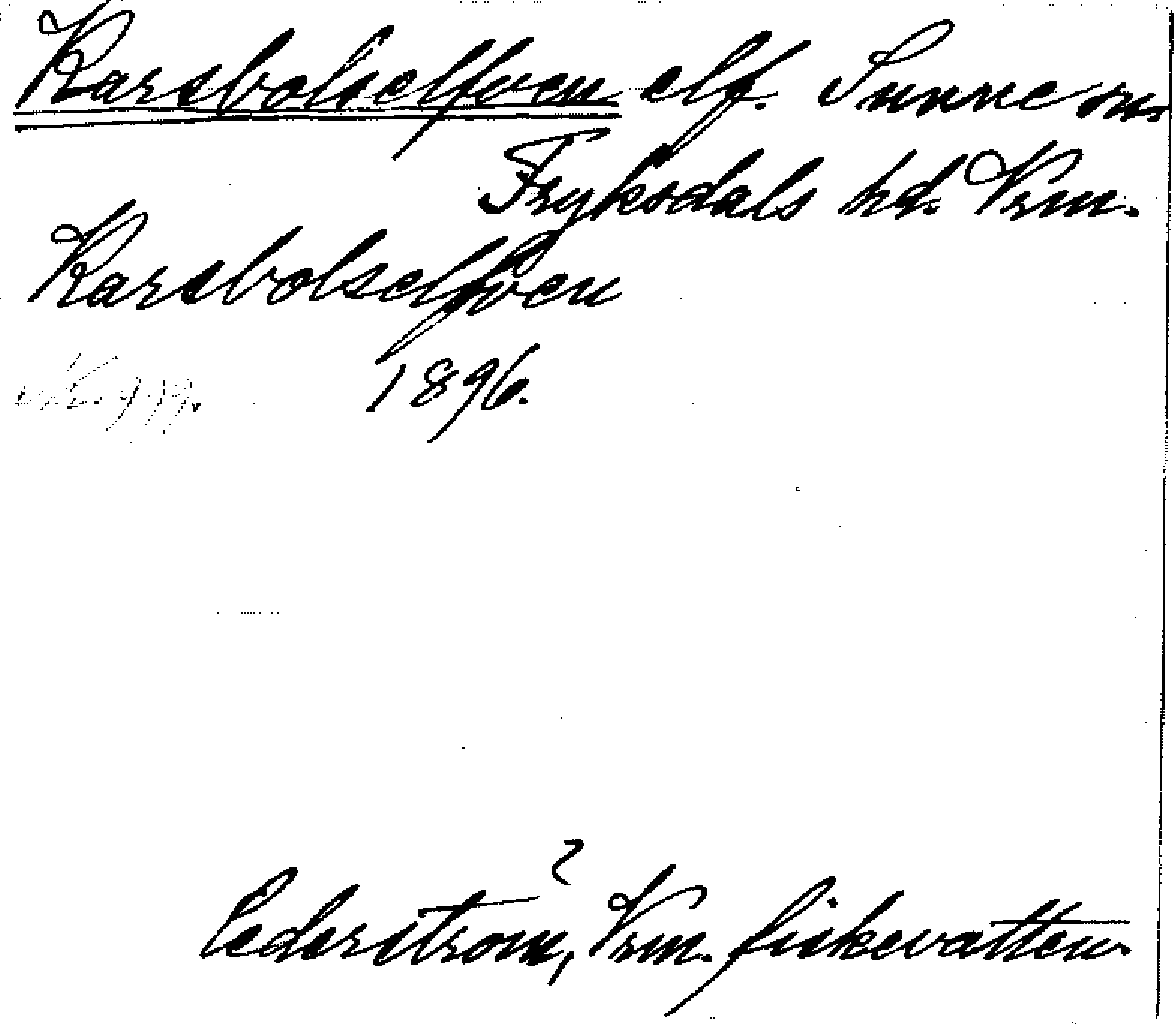 Karsbolselfven elf. Sunne sn.
Fryksdals hd. Vrm.
Karsbolselfven
1896.
Cederström, Vrm. fiskevatten.